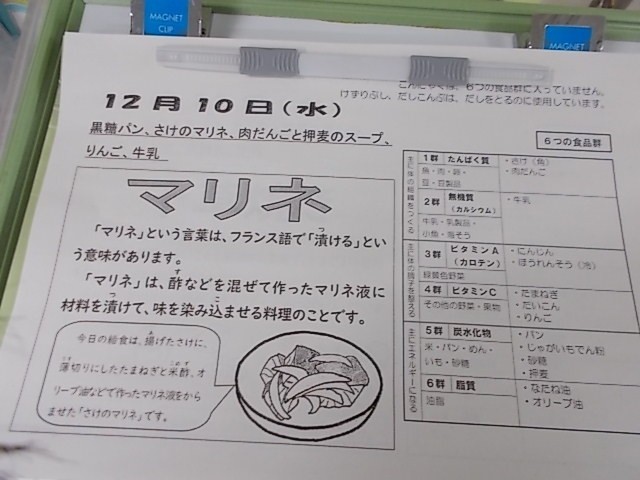 MAGNET
CLIP
MAGNET
６つの食品群に入っていません。
けずりぶし、だしこんぶは、だしをとるのに使用しています。
12月10日（水）
黒糖パン、さけのマリネ、肉だんごと押麦のスープ、
りんご、牛乳
マリネ
「マリネ」という言葉は、フランス語で「漬ける」とい
う意味があります。
「マリネ」は、酢などを混ぜて作ったマリネ液に
材料を漬けて、味を染み込ませる料理のことです。
今日の給食は、揚げたさけに、
薄切りにしたたまねぎと米酢、オ
リーブ油などで作ったマリネ液をから
ませた「さけのマリネ」です。
６つの食品群
主に体の組織をつくる
１群 たんぱく質
魚・肉・卵・
豆・豆製品
・さけ（魚）
・肉だんご
２群 無機質
（カルシウム）
牛乳・乳製品・
小魚・海そう
・牛乳
主に体の調子を整える
３群 ビタミンA
（カロテン）
緑黄色野菜
・にんじん
・ほうれんそう（冷）
４群 ビタミンC
その他の野菜・果物
・たまねぎ
・だいこん
・りんご
主にエネルギーになる
５群 炭水化物
米・パン・めん・
いも・砂糖
・パン
・じゃがいもでん粉
・砂糖
・押麦
６群 脂質
油脂
・なたね油
・オリーブ油